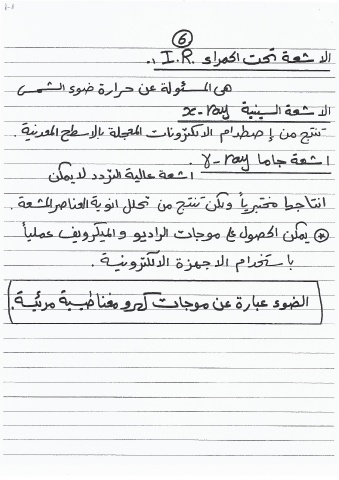 ٦
الاشعة تحت الحمراء I.R. :.
هي المسئولة عن حرارة ضوء الشمس
الاشعة السينية x-ray
تنتج من إصطدام الالكترونات المعجلة بالاسطح المعدنية .
اشعة جاما γ-ray .
اشعة عالية التردد لا يمكن
انتاجها مختبرياً ولكن تنتج من تحلل انوية العناصر المشعة .
* يمكن الحصول على موجات الراديو و الميكرويف عملياً
باستخدام الاجهزة الالكترونية .
الضوء عبارة عن موجات كهرومغناطيسية مرئية .